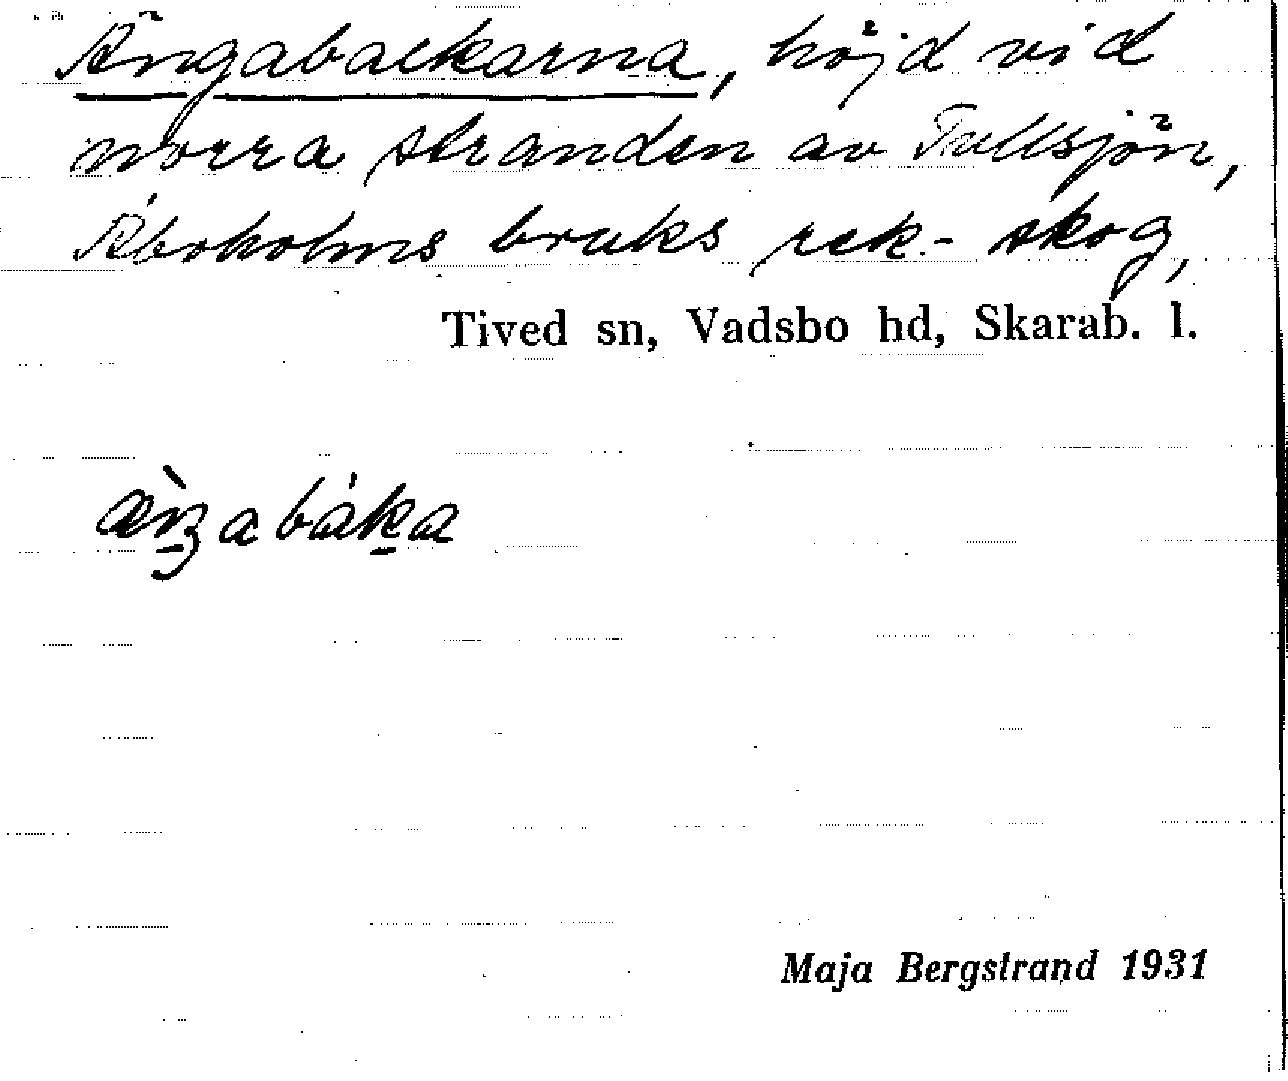 Ängabackarna, höjd vid
norra stranden av Tullsjön,
Åboholms bruks rek.- skog,
Tived sn, Vadsbo hd, Skarab. l.
æ̀ŋabáka
Maja Bergstrand 1931